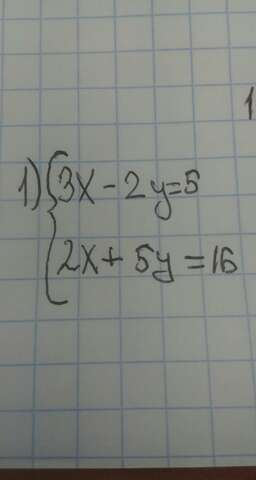 1) { 3x - 2y = 5
2x + 5y = 16
1